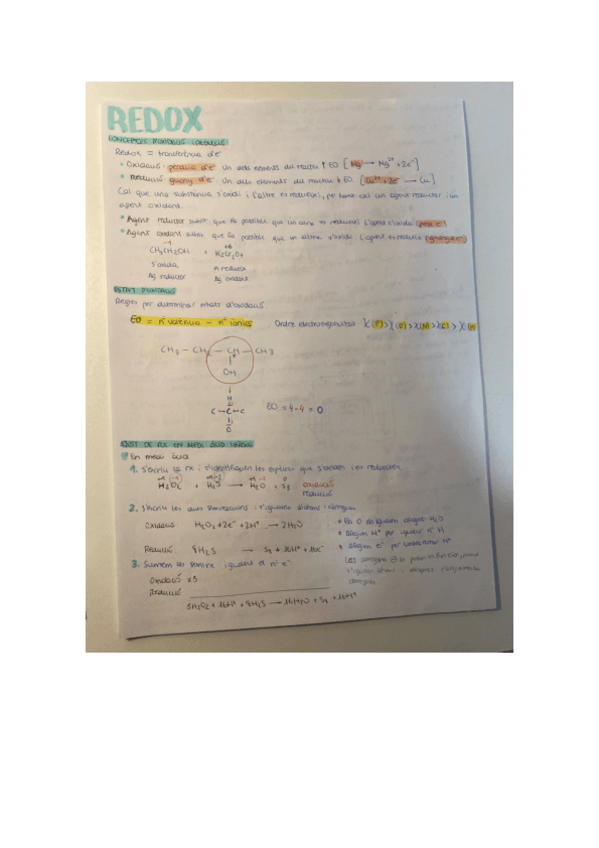 REDOX
CONCEPTES
Redox = transferència d'e⁻
• Oxidació: pèrdua d'e⁻. Un dels elements del reactiu ↑ EO [Mg → Mg²⁺ + 2e⁻]
• Reducció: guany d'e⁻. Un dels elements del reactiu ↓ EO [Cu²⁺ + 2e⁻ → Cu]
Cal que una substància s'oxidi i l'altre es redueixi, per tant cal un agent reductor i un
agent oxidant.
• Agent reductor: que fa possible que un altre es redueixi. L'agent s'oxida (perd e⁻)
• Agent oxidant: que fa possible que un altre s'oxidi. L'agent es redueix (guanya e⁻)
CH₃CH₂OH + K₂Cr₂O₇
s'oxida es redueix
Ag. reductor Ag. oxidant
ESTAT D'OXIDACIÓ
Regles per determinar estats d'oxidació
EO = nº valència - nº iònics Ordre electronegativitat
CH₃ - CH₂ - CH - CH₃
OH
H
C - C - C
O
EO = 4 - 4 = 0
AJUST DE RX EN MEDI ÀCID
En medi àcid
1. S'escriu la rx i s'identifiquen les espècies que s'oxiden i es redueixen
H₂O₂ + H₂S → H₂O + S₈ oxidació
reducció
2. S'escriu les dues i s'igualen àtoms i càrregues
Oxidació H₂O₂ + 2e⁻ + 2H⁺ → 2H₂O
Reducció 8H₂S → S₈ + 16H⁺ + 16e⁻
• Els O s'igualen afegint H₂O
• Afegim H⁺ per igualar nº H
• Afegim e⁻ per H⁺
3. Sumem les igualant el nº e⁻
Oxidació x8
Reducció
8H₂O₂ + 16H⁺ + 8H₂S → 16H₂O + S₈ + 16H⁺